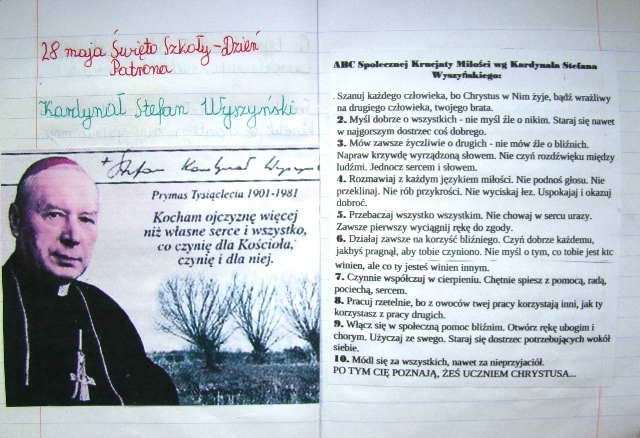 28 maja Święto Szkoły-Dzień
Patrona
Kardynał Stefan Wyszyński
+ Stefan Kardynał Wyszyń
Prymas Tysiąclecia 1901-1981
Kocham ojczyznę więcej
niż własne serce i wszystko,
co czynię dla Kościoła,
czynię i dla niej.
ABC Społecznej Krucjaty Miłości wg Kardynała Stefana
Wyszyńskiego:
. Szanuj każdego człowieka, bo Chrystus w Nim żyje, bądź wrażliwy
na drugiego człowieka, twojego brata.
2. Myśl dobrze o wszystkich - nie myśl źle o nikim. Staraj się nawet
w najgorszym dostrzec coś dobrego.
3. Mów zawsze życzliwie o drugich - nie mów źle o bliźnich.
Napraw krzywdę wyrządzoną słowem. Nie czyń rozdźwięku między
ludźmi. Jednocz sercem i słowem.
4. Rozmawiaj z każdym językiem miłości. Nie podnoś głosu. Nie
przeklinaj. Nie rób przykrości. Nie wyciskaj łez. Uspokajaj i okazuj
dobroć.
5. Przebaczaj wszystko wszystkim. Nie chowaj w sercu urazy.
Zawsze pierwszy wyciągnij rękę do zgody.
6. Działaj zawsze na korzyść bliźniego. Czyń dobrze każdemu,
jakbyś pragnął, aby tobie czyniono. Nie myśl o tym, co tobie jest ktc
winien, ale co ty jesteś winien innym.
7. Czynnie współczuj w cierpieniu. Chętnie spiesz z pomocą, radą,
pociechą, sercem.
8. Pracuj rzetelnie, bo z owoców twej pracy korzystają inni, jak ty
korzystasz z pracy drugich.
9. Włącz się w społeczną pomoc bliźnim. Otwórz rękę ubogim i
chorym. Użyczaj ze swego. Staraj się dostrzec potrzebujących wokół
siebie.
10. Módl się za wszystkich, nawet za nieprzyjaciół.
PO TYM CIĘ POZNAJĄ, ŻEŚ UCZNIEM CHRYSTUSA...